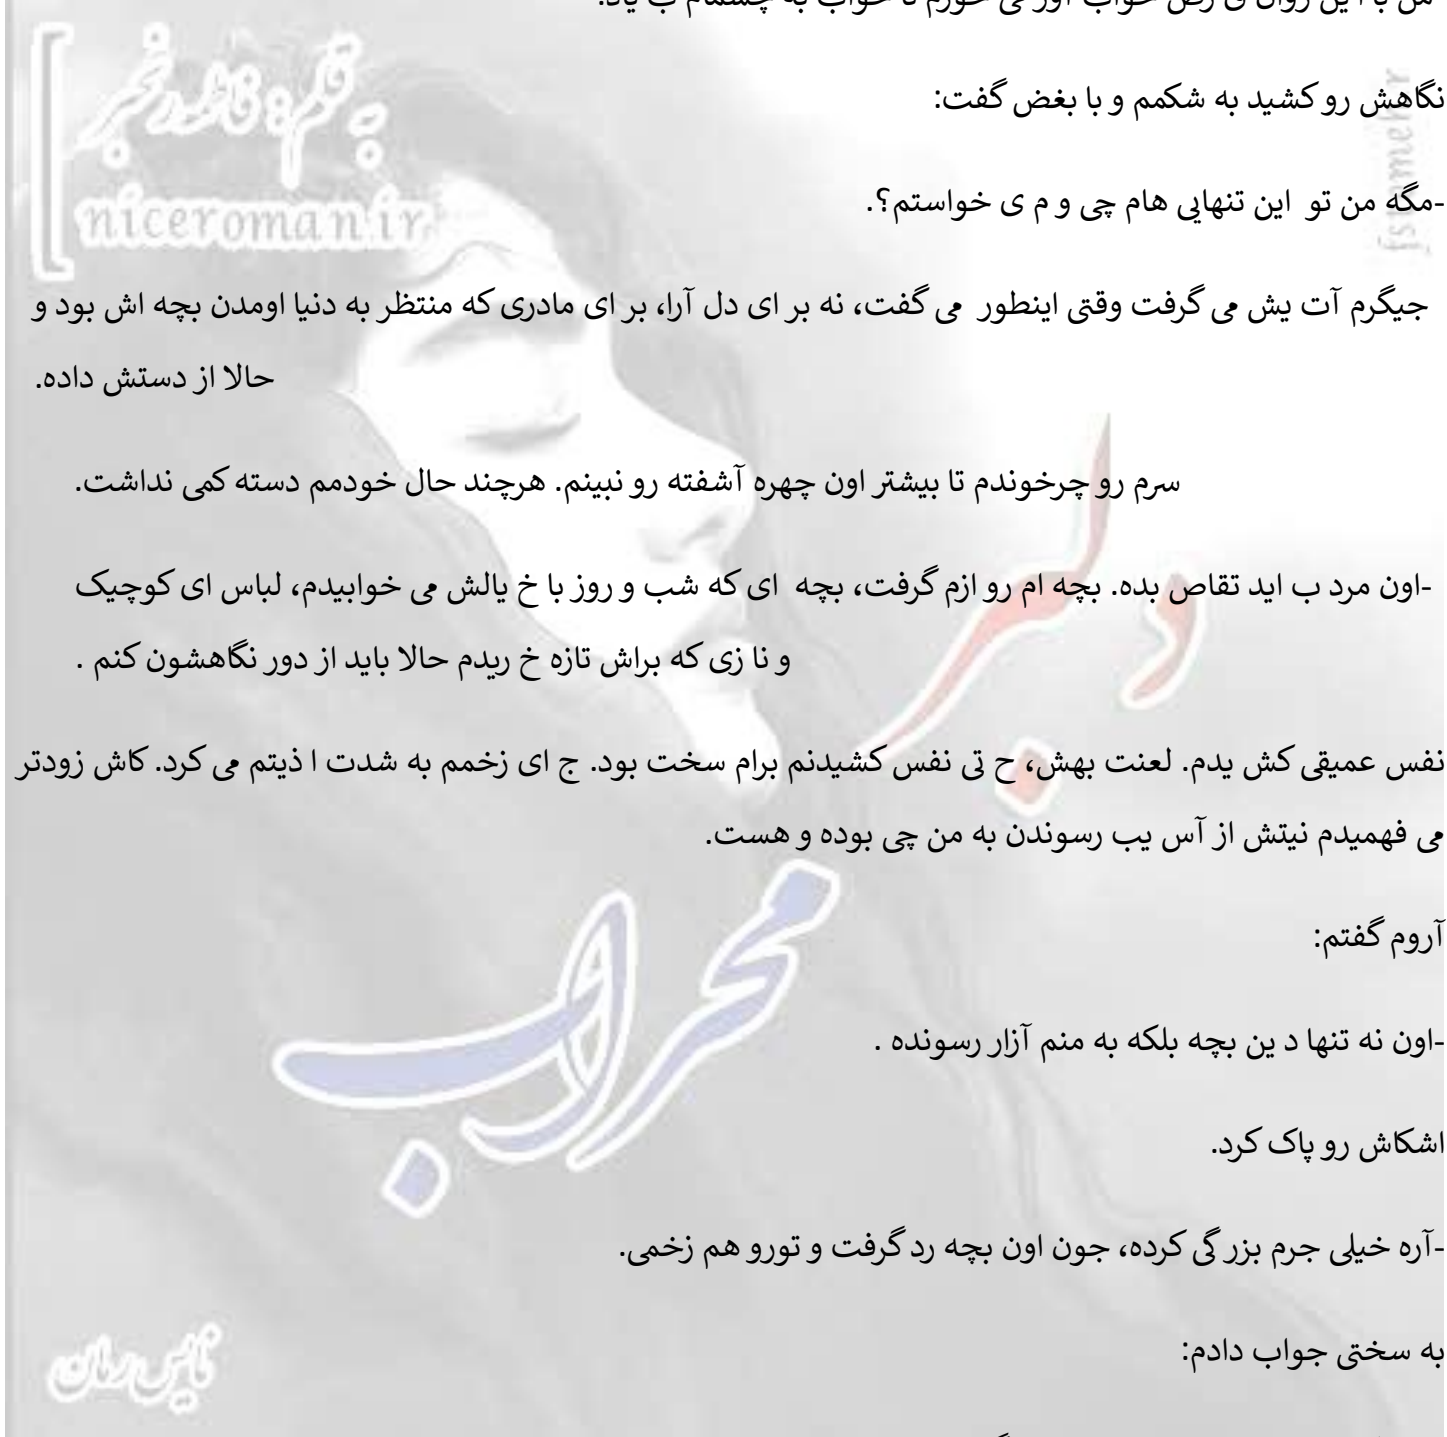 من با این روال ق رص خواب آور می خورم تا خواب به چشمام ب یاد.
نگاهش رو کشید به شکمم و با بغض گفت:
-مگه من تو این تنهایی هام چی و م ی خواستم؟.
جیگرم آت یش می گرفت وقتی اینطور می گفت، نه بر ای دل آرا، بر ای مادری که منتظر به دنیا اومدن بچه اش بود و
حالا از دستش داده.
سرم رو چرخوندم تا بیشتر اون چهره آشفته رو نبینم. هرچند حال خودمم دسته کمی نداشت.
-اون مرد ب اید تقاص بده. بچه ام رو ازم گرفت، بچه ای که شب و روز با خ یالش می خوابیدم، لباس ای کوچیک
و نا زی که براش تازه خ ریدم حالا باید از دور نگاهشون کنم .
نفس عمیقی کش یدم. لعنت بهش، ح تی نفس کشیدنم برام سخت بود. ج ای زخمم به شدت ا ذیتم می کرد. کاش زودتر
می فهمیدم نیتش از آس یب رسوندن به من چی بوده و هست.
آروم گفتم:
-اون نه تنها د ین بچه بلکه به منم آزار رسونده .
اشکاش رو پاک کرد.
-آره خیلی جرم بزر گی کرده، جون اون بچه رد گرفت و تورو هم زخمی.
به سختی جواب دادم:
niceroman.ir
دلبر
محراب
نایس رمان